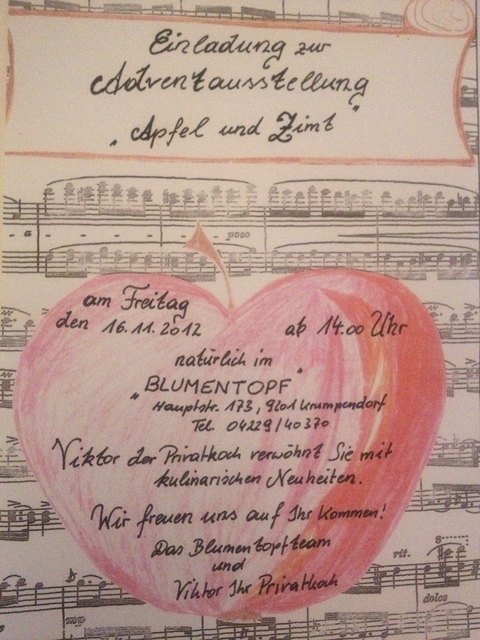 Einladung zur
Adventausstellung
„Apfel und Zimt"
a - - - - poco
am Freitag
den 16.11.2012 ab 14.00 Uhr
natürlich im
„BLUMENTOPF"
Hauptstr. 173, 9201 Krumpendorf
Tel. 04229/40370
Viktor der Privatkoch verwöhnt Sie mit
kulinarischen Neuheiten.
Wir freuen uns auf Ihr Kommen!
Das Blumentopfteam
und
Viktor Ihr Privatkoch
rit.
dolce